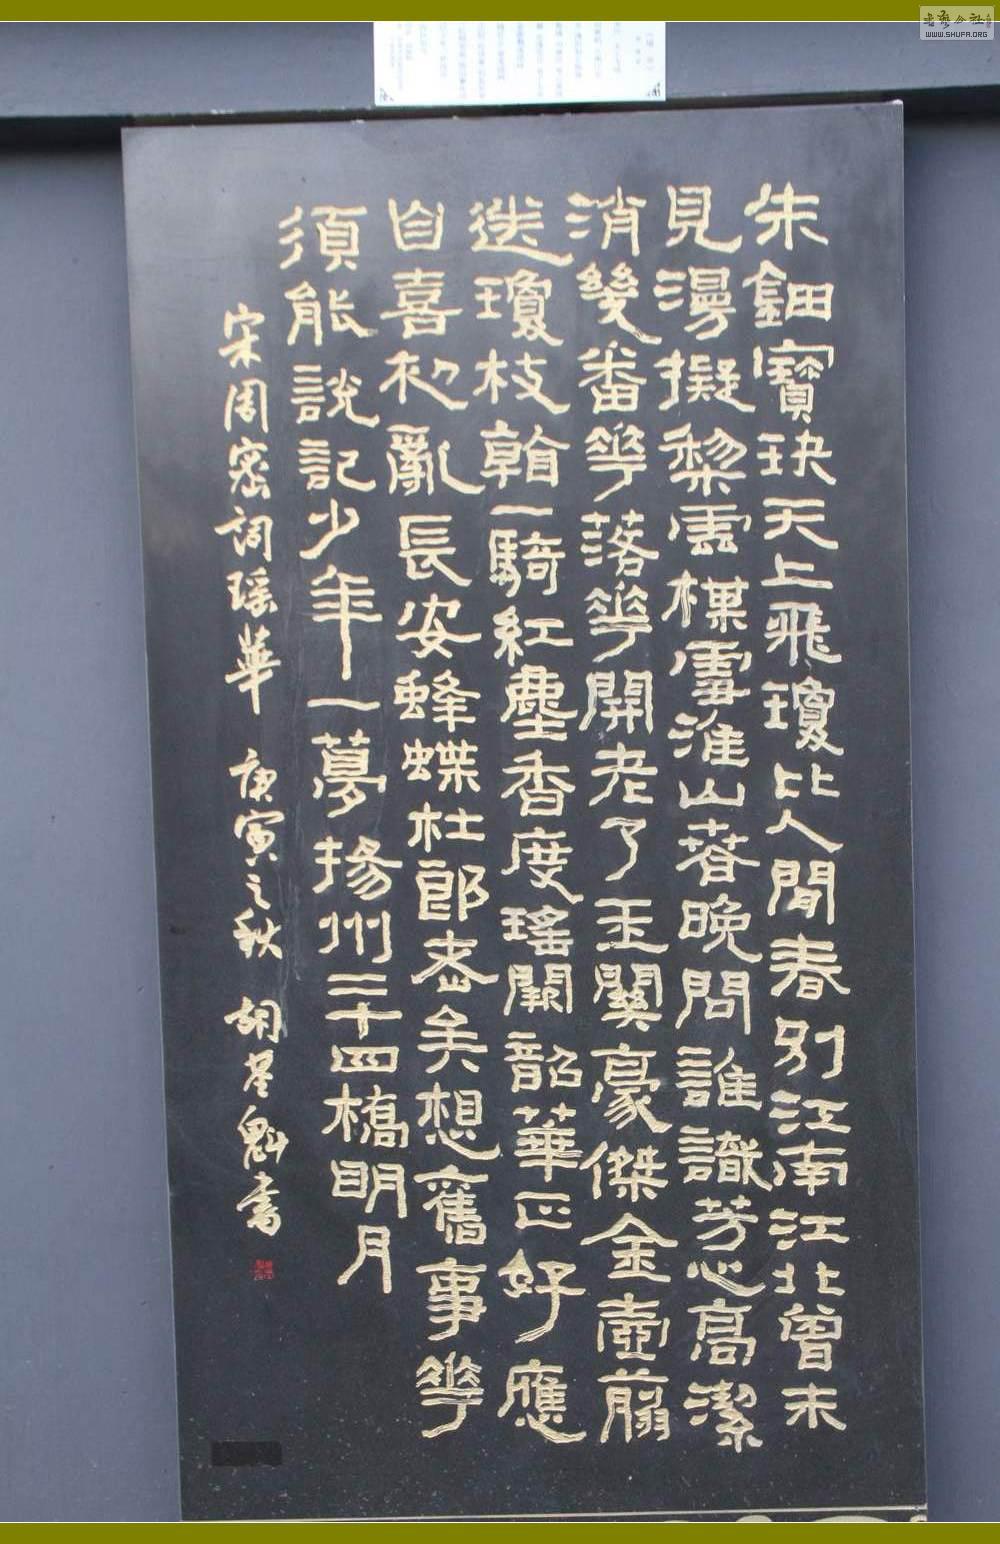 朱鈿寶玦天上飛瓊比人間春別江南江北曾未
見漫擬棃雲楳雪淮山春晚問誰識芳心高潔
消幾番花落花開老了玉關豪傑金壺翦
送瓊枝看一騎紅塵香度瑤闕韶華正好應
自喜初亂長安蜂蝶杜郎老矣想舊事花
須能說記少年一夢揚州二十四橋明月
宋周密詞瑤華 庚寅之秋 胡星魁書
書藝公社
WWW.SHUFA.ORG